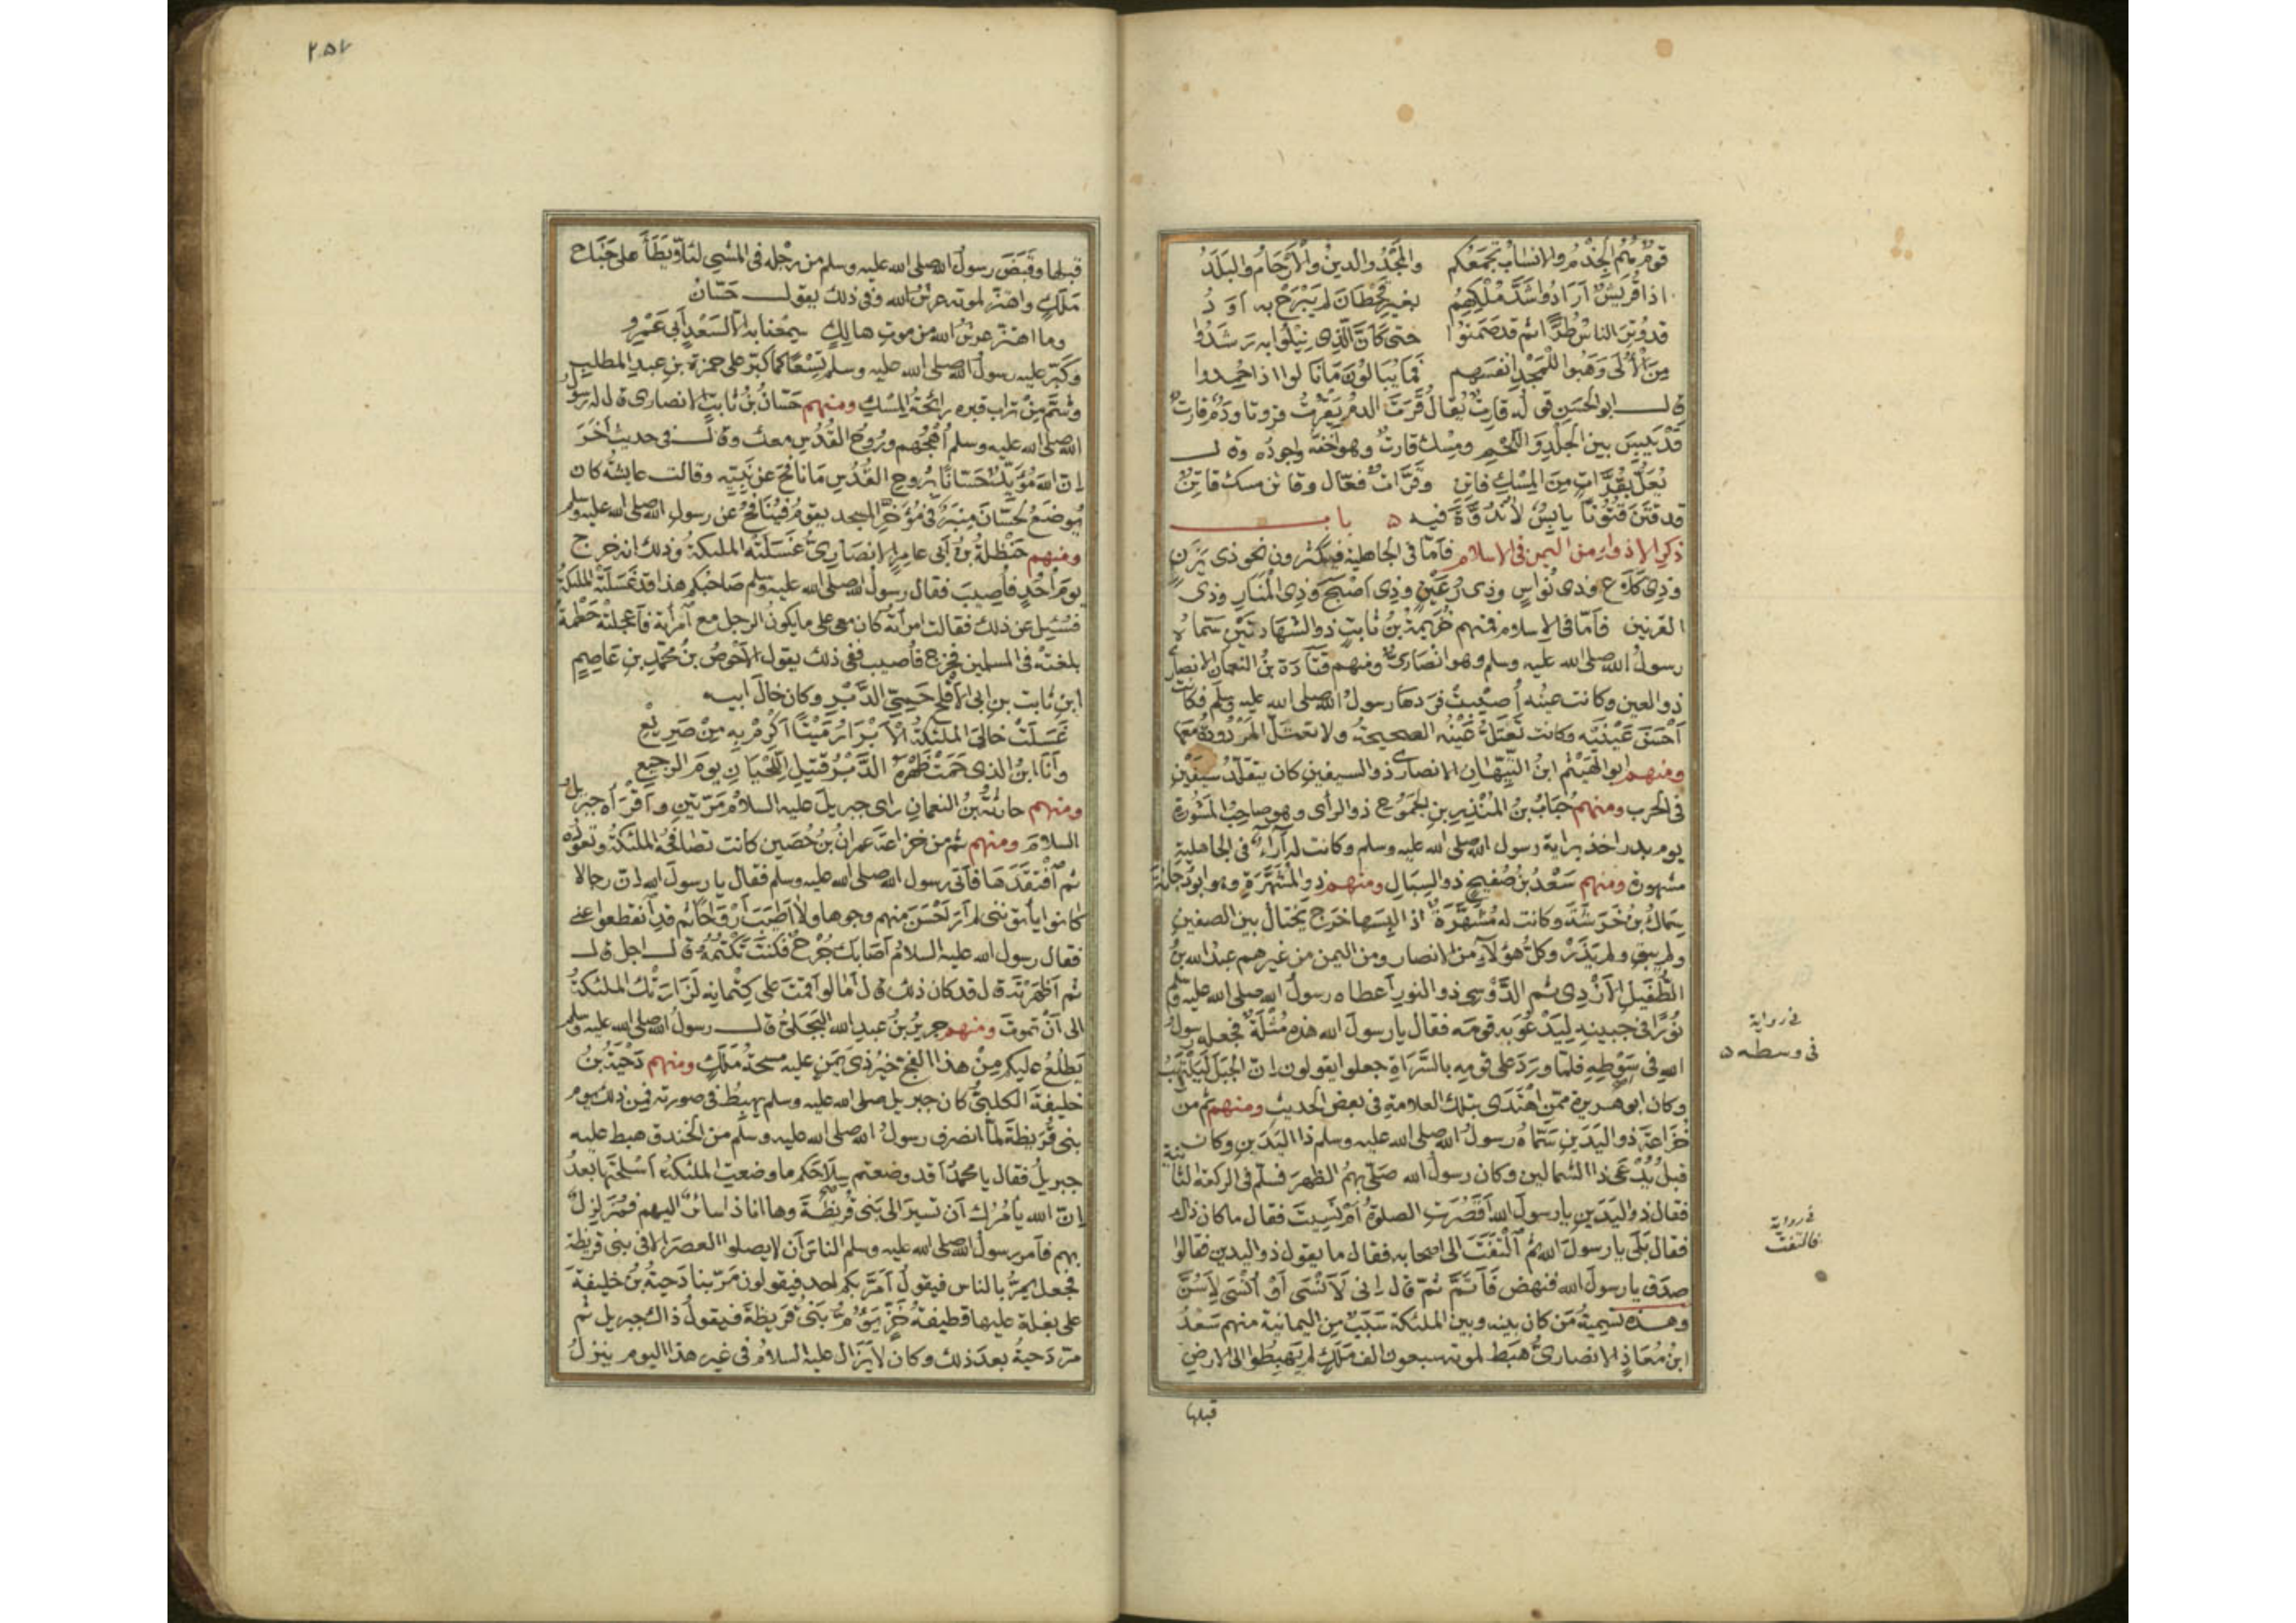 قومٌ هُمُ الجِذْمُ والانسابُ تَجمَعُكم والمَجْدُ والدينُ والأرحَامُ والبَلَدُ
اذا قُريشٌ أرَادُوا شَدَّ مُلْكِهِمُ بغيرِ قَحْطانَ لم يَبْرَحْ به أوَدُ
قد وُتِرَ الناسُ طُرًّا ثم قد صَمَتوا حتى كَأنَّ الذى نِيْلُوا به رَشَدُ
مِنَ الأُلَى وَهَبوا للمَجْدِ انفُسَهم فَمَا يُبَالُونَ مَا نَالوا اذا حُمِدوا
قال ابو الحَسَنِ قوله قارتٌ يُقالُ قَرَتَ الدمُ يَقرُتُ قروتا ودَمٌ قارتٌ
قد يَبِسَ بين الجلدِ واللَّحْمِ ومِسْكٌ قارتٌ وهو أخفّه واجودُه وقال
يُعَلُّ بقُرَّاتٍ مِنَ المِسْكِ قاتِنِ وقُرَّاتٌ فعّال وقاتن مسك قاتِنٌ
قد قَتَنَ قُتُونًا يابِسٌ لا نُدُوَّةَ فيه ه باب
ذكر الاذواءِ من اليمن فى الاسلام فأمّا فى الجاهلية فيكثرون نحو ذى يَزَنٍ
وذِى كَلَاعٍ وذى نُوَاسٍ وذى رُعَيْنٍ وذِى أصْبَحَ وذِى المنَارِ وذى
القرنين فأمّا فى الاسلام فمنهم خُزيمةُ بنُ ثابتٍ ذو الشهادتَيْنِ سَمّاهُ
رسولُ الله صلى الله عليه وسلم وهو انْصَارىٌّ ومنهم قتَادَة بنُ النعمانِ الانصارى
ذو العين وكانت عينُه أُصيبتْ فرَدهَا رسولُ الله صلى الله عليه وسلَّم فكانَت
أحْسَنَ عَيْنَيْه وكانت تَعتَلُّ عَيْنُه الصحيحةُ ولا تعتلّ المَرْدُودةُ معَها
ومنهم ابو الهَيْثَم ابنُ التَّيِّهَانِ الانصارىّ ذو السيفينِ كان يتقلّدُ سَيْفَيْنِ
فى الحرب ومنهم حُبَابُ بنُ المُنْذِرِ بنِ الجَمُوحِ ذو الرأى وهو صاحِبُ المَشُورةِ
يوم بدر اخذ برايه رسول الله صلى الله عليه وسلم وكانت له آراءٌ فى الجاهليةِ
مشهورة ومنهم سَعْدُ بنُ صُفيحٍ ذو السِبَالِ ومنهم ذو المُشَهَّرَةِ وهو ابو دُجانَةَ
سِمَاكُ بنُ خَرَشَةَ وكانت له مُشَهَّرَةٌ اذا لبِسَها خرَج يَختال بين الصفينِ
ولم يبقِ ولم يَذَرْ وكلُّ هؤلآءِ من الانصار ومن اليمن من غيرهم عبدُ الله بنُ
الطُّفَيلِ الأزْدِى ثم الدَّوْسى ذو النورِ أعطاه رسولُ الله صلى الله عليه وسلم
نُورًا فى جبينهِ لِيَدْعُوَ به قومَه فقال يا رسولَ الله هذه مُثْلَةٌ فجعله رسولُ
اللهِ فى سَوْطِهِ فلمّا ورَدَ على قومِهِ بالسَّرَاةِ جعلوا يقولون إنّ الجَبَلَ لَيَلْتَهِبُ
وكان ابو هريرة ممّن اهْتَدَى بتلك العلامةِ فى بعض الحديث ومنهم ثم من
خُزاعةَ ذو اليَدَينِ سَمّاهُ رسولُ الله صلى الله عليه وسلم ذا اليَدَينِ وكان
قبلُ يُدْعَى ذا الشمالين وكان رسولُ الله صَلّى بهِمُ الظهرَ فسلّم فى الركعة الثانية
فقال ذو اليَدَينِ يا رسولَ الله أقَصُرَتِ الصلوٰةُ أمْ نَسِيتَ فقال ما كان ذلك
فقال بَلَى يا رسولَ الله ثم الْتفَتَ الى اصحابه فقال ما يقول ذو اليدين فقالوا
صدَق يا رسولَ الله فنهض فَأتَمَّ ثمّ قال إنى لَأنْسَى أوْ أُنَسَّى لِأَسُنَّ
وهذه تسميةُ مَن كان بينه وبين الملئكة سَبَبٌ من اليمانية منهم سَعْدُ
ابنُ مُعَاذٍ الانصارىُّ هبَط لموته سبعون الفَ مَلَكٍ لم يَهبِطُوا الى الارضِ
قبلها
فى رواية
فى وسطه ه
فى رواية
فالتفت
٢٥٧
قبلها وقَبَضَ رسولُ الله صلى الله عليه وسلم من رِجْله فى المشى لئلّا يَطَأَ على جَنَاحِ
مَلَكٍ واهتزّ لموته عرشُ الله وفى ذلك يقول حَسّانُ
وما اهتزّ عرشُ الله من موتِ هالِكٍ سمِعْنا به إلّا لسَعْدٍ أبى عَمْرِو
وكَبّر عليه رسولُ الله صلى الله عليه وسلم تِسْعًا كما كبّر على حمزة بنِ عبدِ المطلب
وشُمَّ مِنْ تراب قبره رائحةُ المِسْكِ ومنهم حَسّانُ بنُ ثابتٍ الانصارى قال له رسولُ
الله صلى الله عليه وسلم اُهْجُهُم ورُوحُ القُدُسِ معك وقال فى حديث آخَرَ
إنّ الله مُؤَيِّدٌ حَسّانًا بُروحِ القُدُسِ مَا نافحَ عن نَبيّه وقالت عايشةُ كان
يُوضَعُ لحَسّانَ مِنبَرٌ فى مُؤَخَّرِ المسجد يقومُ فيُنَافِحُ عن رسولِ الله صلى الله عليه وسلم
ومنهم حَنْظلةُ بنُ أبى عامرٍ الانصَارىُّ غَسَلَتْه الملئكةُ وذلك انه خرج
يومَ أُحُدٍ فأُصِيبَ فقال رسولُ الله صلى الله عليه وسلم صَاحبُكم هذا قد غَسَلَتْه الملئكةُ
فسُئِلَ عن ذلك فقالت امرأتُه كان معى على ما يكونُ الرجل مع امرأتِه فأعجلتْه حَطْمَةٌ
بلغتْه فى المسلمين فخرج فأُصيب ففى ذلك يقول الأحْوصُ بنُ محمّدِ بنِ عَاصِمِ
ابنِ ثابت بنِ ابى الأقْلَحِ حَمِىِّ الدَّبْرِ وكان خالَ ابيه
غَسَلَتْ خالِىَ الملئكةُ الأبْرَارُ مَيْتًا أَكرِمْ بِهِ مِنْ صَرِيعِ
وأنَا ابنُ الذى حَمَتْ ظَهرَهُ الدَّبْرُ قَتِيلِ اللِّحْيَانِ يومَ الرجيعِ
ومنهم حارثةُ بنُ النعمانِ راى جبريلَ عليه السلامُ مَرّتينِ وأقْرَأه جبريلُ
السلامَ ومنهم ثم من خزاعةَ عمرانُ بنُ حُصَينٍ كانت تصافحُه الملئكةُ وتعودُه
ثم افْتقَدَهَا فأتى رسولَ الله صلى الله عليه وسلم فقال يا رسولَ الله إنّ رجالا
كانوا يأتوننى لم أرَ أحْسَنَ منهم وجوها ولا أطيَبَ أرْوَاحًا ثم قد انقطعوا عنى
فقال رسول الله عليه السلامُ أصَابك جُرْحٌ فكنتَ تكتُمُه قال اجل قال
ثم أظهَرْتَه قال قد كان ذلك قال أمَا لو أقمْتَ على كِتْمانِه لَزَارَتْك الملئكةُ
الى أنْ تموتَ ومنهم جريرُ بنُ عبدِ الله البَجَلىّ قال رسولُ الله صلى الله عليه وسلم
يَطْلُعُ عليكم مِنْ هذا الفَجِّ خيرُ ذى يَمَنٍ عليه مسحةُ مَلَكٍ ومنهم دَحْيَةُ بنُ
خليفة الكلبىُّ كان جبريل صلى الله عليه وسلم يهبِطُ فى صورته فمِن ذلك يوم
بنى قُرَيظةَ لمّا انصرف رسولُ الله صلى الله عليه وسلم من الخندق هبط عليه
جبريلُ فقال يا محمدُ أقد وضعتم سِلَاحَكم ما وضعتِ الملئكةُ أسْلِحَتَها بعدُ
إنّ الله يأمُرُك أن تسيرَ الى بَنى قُرَيظةَ وها انا ذا سائرٌ اليهم فمُزَلزِلٌ
بهم فأمر رسولُ الله صلى الله عليه وسلم الناسَ أن لا يصلوا العصرَ إلا فى بنى قريظة
فجعل يمرُّ بالناس فيقولُ أمَرَّ بكم احد فيقولون مَرّ بنا دَحيةُ بنُ خليفةَ
على بغلة عليها قطيفةُ خَزٍّ يَؤُمُّ بنى قُرَيظةَ فيقولُ ذاك جبريل ثم
مرّ دَحيةُ بعدَ ذلك وكان لا يَزَال عليه السلامُ فى غير هذا اليوم ينزلُ